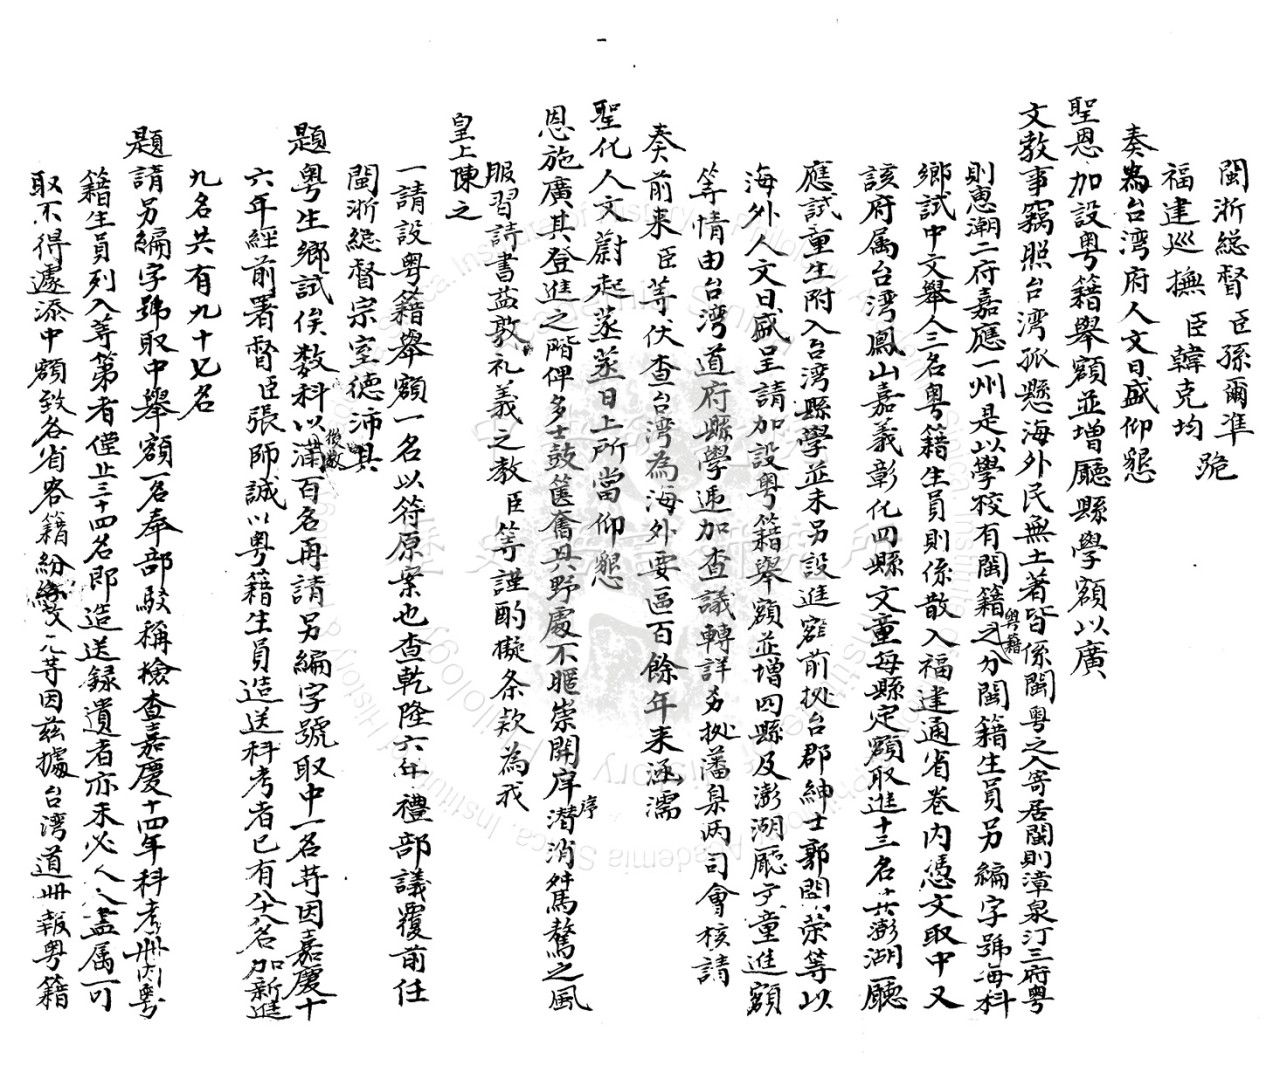 閩浙総督臣孫爾準
福建巡撫臣韓克均 跪
奏為台湾府人文日盛仰懇
聖恩加設粤籍舉額並增廳縣學額以廣
文教事竊照台湾孤懸海外民無土著皆係閩粤之人寄居閩則漳泉汀三府粤
則惠潮二府嘉應一州是以學校有閩籍粤籍之分閩籍生員另編字號每科
鄉試中文舉人三名粤籍生員則係散入福建通省卷内憑文取中又
該府属台湾鳳山嘉義彰化四縣文童每縣定額取進十三名其澎湖廳
應試童生附入台湾縣學並未另設進額前拠台郡紳士郭開榮等以
海外人文日盛呈請加設粤籍舉額並增四縣及澎湖廳文童進額
等情由台湾道府縣學遞加查議轉詳另拠藩臬两司會核請
奏前来臣等伏查台湾為海外要區百餘年来涵濡
聖化人文蔚起蒸蒸日上所當仰懇
恩施廣其登進之階俾多士鼓篋奮興野處不暱崇開庠序潛消舛馬驁之風
服習詩書益敦礼義之教臣等謹酌擬条欵為我
皇上陳之
一請設粤籍舉額一名以符原案也查乾隆六年禮部議覆前任
閩浙総督宗室德沛具
題粤生鄉試俟数科後数以滿百名再請另編字號取中一名等因嘉慶十
六年經前署督臣張師誠以粤籍生員造送科考者已有八十八名加新進
九名共有九十七名
題請另編字號取中舉額一名奉部駁稱檢查嘉慶十四年科考册内粤
籍生員列入等第者僅止三十四名即造送録遺者亦未必人人盡属可
取不得遽添中額致各省客籍紛紛效尤等因茲據台湾道册報粤籍